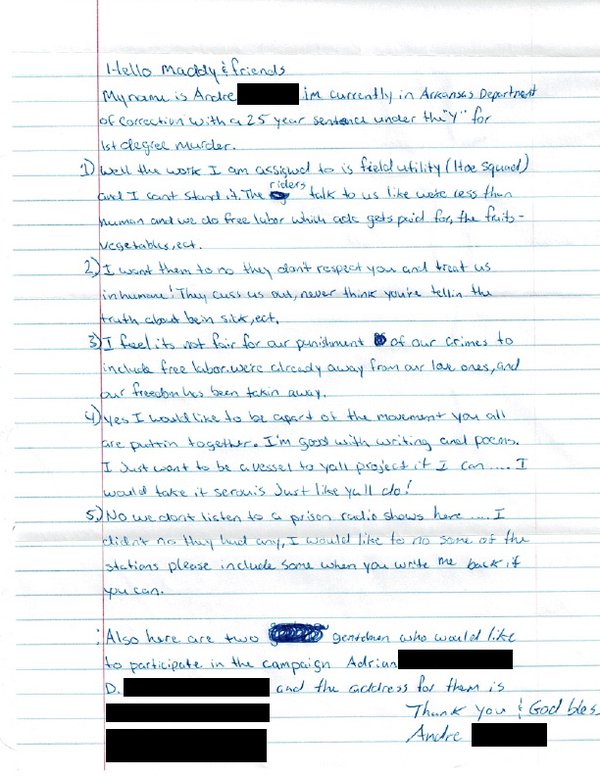 Hello Maddy & friends
My name is Andre im currently in Arkansas Department
of Correction with a 25 year sentence under the "Y" for
1st degree murder.
1) Well the work I am assigned to is field utility (Hoe Squad)
and I cant stand it. The riders talk to us like we're less than
human and we do free labor which adc gets paid for, the fruits-
vegetables, ect.
2.) I want them to no they don't respect you and treat us
inhumane! They cuss us out, never think you're tellin the
truth about bein sick, ect.
3) I feel its not fair for our punishment of our crimes to
include free labor. we're already away from our love ones, and
our freedom has been takin away.
4) yes I would like to be apart of the movement you all
are puttin together. I'm good with writing and poems.
I Just want to be a vessel to yall project if I can.... I
would take it serouis Just like yall do!
5.) No we dont listen to a prison radio shows here .... I
didn't no they had any, I would like to no some of the
stations please include some when you write me back if
you can.
Also here are two gentelmen who would like
to participate in the campaign Adrian
D. and the address for them is
Thank you & God bles
Andre